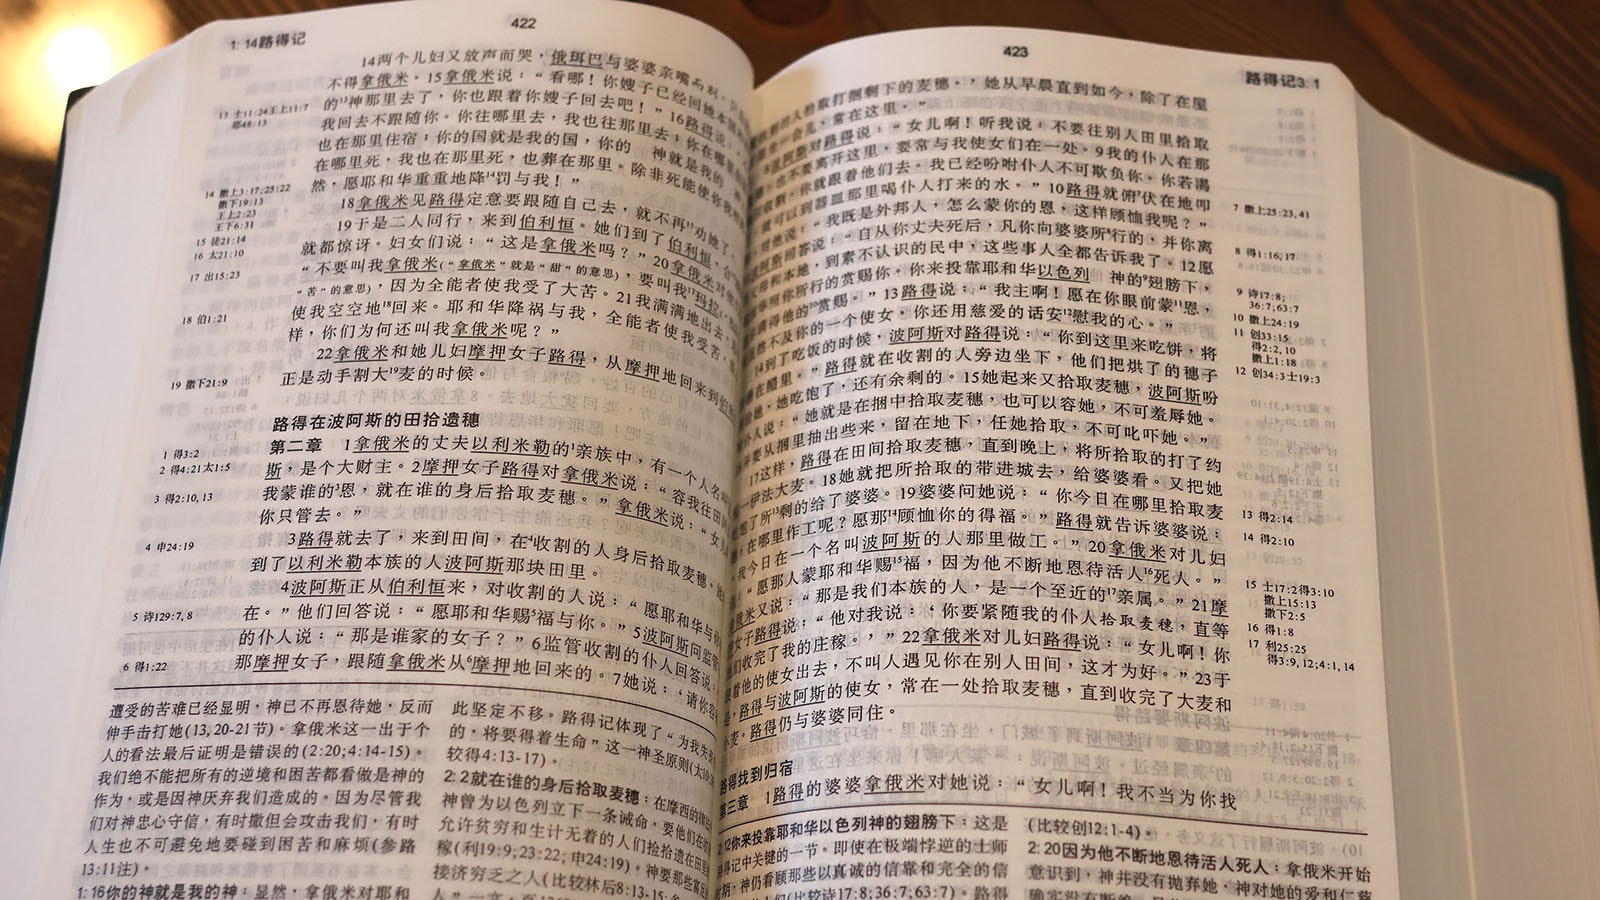 1: 14路得记
422
14两个儿妇又放声而哭，俄珥巴与婆婆亲嘴而别，
不得拿俄米。15拿俄米说：“看哪！你嫂子已经回她本
的¹⁵神那里去了，你也跟着你嫂子回去吧！”16路得说：
我回去不跟随你。你往哪里去，我也往那里去；你在哪
也在那里住宿；你的国就是我的国，你的 神就是我的
在哪里死，我也在那里死，也葬在那里。除非死能使你我
然，愿耶和华重重地降¹⁴罚与我！”
18拿俄米见路得定意要跟随自己去，就不再¹⁵劝她了
19于是二人同行，来到伯利恒。她们到了伯利恒，合
就都惊讶。妇女们说：“这是拿俄米吗？”20拿俄米对他
“不要叫我拿俄米(“拿俄米”就是“甜”的意思)，要叫我¹⁷玛拉
“苦”的意思)，因为全能者使我受了大苦。21我满满地出去，
使我空空地¹⁸回来。耶和华降祸与我，全能者使我受苦，
样，你们为何还叫我拿俄米呢？”
22拿俄米和她儿妇摩押女子路得，从摩押地回来到伯
正是动手割大¹⁹麦的时候。
路得在波阿斯的田拾遗穗
第二章 1拿俄米的丈夫以利米勒的¹亲族中，有一个人名
斯，是个大财主。2摩押女子路得对拿俄米说：“容我往田
我蒙谁的³恩，就在谁的身后拾取麦穗。”拿俄米说：“女
你只管去。”
3路得就去了，来到田间，在⁴收割的人身后拾取麦穗。她
到了以利米勒本族的人波阿斯那块田里。
4波阿斯正从伯利恒来，对收割的人说：“愿耶和华与你
在。”他们回答说：“愿耶和华赐⁵福与你。”5波阿斯问监管
的仆人说：“那是谁家的女子？”6监管收割的仆人回答说：
那摩押女子，跟随拿俄米从⁶摩押地回来的。7她说：‘请你容
13 士11:24王上11:7
耶48:13
14 撒上3:17;25:22
撒下19:13
王上2:23
王下6:31
15 徒21:14
16 太21:10
17 出15:23
18 伯1:21
19 撒下21:9
1 得3:2
2 得4:21太1:5
3 得2:10, 13
4 申24:19
5 诗129:7, 8
6 得1:22
遭受的苦难已经显明，神已不再恩待她，反而
伸手击打她(13, 20-21节)。拿俄米这一出于个
人的看法最后证明是错误的(2:20;4:14-15)。
我们绝不能把所有的逆境和困苦都看做是神的
作为，或是因神厌弃我们造成的。因为尽管我
们对神忠心守信，有时撒但会攻击我们，有时
人生也不可避免地要碰到困苦和麻烦(参路
13:11注)。
1: 16你的神就是我的神：显然，拿俄米对耶和
此坚定不移。路得记体现了“为我失
的，将要得着生命”这一神圣原则(太10:
较得4:13-17)。
2: 2就在谁的身后拾取麦穗：在摩西的律法
神曾为以色列立下一条诫命，要他们在收
允许贫穷和生计无着的人们捡拾遗在田里
稼(利19:9;23:22; 申24:19)。神要那些富足
接济穷乏之人(比较林后8:13-15;
423
路得记3: 1
收割的人拾取打捆剩下的麦穗。’，她从早晨直到如今，除了在屋
一会儿，常在这里。”
8波阿斯对路得说：“女儿啊！听我说：不要往别人田里拾取
也不要离开这里，要常与我使女们在一处。9我的仆人在那
收割，你就跟着他们去。我已经吩咐仆人不可欺负你。你若渴
就可以到器皿那里喝仆人打来的水。”10路得就俯⁷伏在地叩
对他说：“我既是外邦人，怎么蒙你的恩，这样顾恤我呢？”
阿斯回答说：“自从你丈夫死后，凡你向婆婆所⁸行的，并你离
母和本地，到素不认识的民中，这些事人全都告诉我了。12愿
华照你所行的赏赐你。你来投靠耶和华以色列 神的⁹翅膀下，
满得他的¹⁰赏赐。”13路得说：“我主啊！愿在你眼前蒙¹¹恩，
然不及你的一个使女，你还用慈爱的话安¹²慰我的心。”
14到了吃饭的时候，波阿斯对路得说：“你到这里来吃饼，将
蘸在醋里。”路得就在收割的人旁边坐下，他们把烘了的穗子
给她，她吃饱了，还有余剩的。15她起来又拾取麦穗，波阿斯吩
仆人说：“她就是在捆中拾取麦穗，也可以容她，不可羞辱她。
并要从捆里抽出些来，留在地下，任她拾取，不可叱吓她。”
17这样，路得在田间拾取麦穗，直到晚上，将所拾取的打了约
一伊法大麦。18她就把所拾取的带进城去，给婆婆看。又把她
了所¹³剩的给了婆婆。19婆婆问她说：“你今日在哪里拾取麦
在哪里作工呢？愿那¹⁴顾恤你的得福。”路得就告诉婆婆说：
“我今日在一个名叫波阿斯的人那里做工。”20拿俄米对儿妇
“愿那人蒙耶和华赐¹⁵福，因为他不断地恩待活人¹⁶死人。”
俄米又说：“那是我们本族的人，是一个至近的¹⁷亲属。”21摩
女子路得说：“他对我说：‘你要紧随我的仆人拾取麦穗，直等
们收完了我的庄稼。’”22拿俄米对儿妇路得说：“女儿啊！你
着他的使女出去，不叫人遇见你在别人田间，这才为好。”23于
是，路得与波阿斯的使女，常在一处拾取麦穗，直到收完了大麦和
小麦。路得仍与婆婆同住。
路得找到归宿
第三章 1路得的婆婆拿俄米对她说：“女儿啊！我不当为你找
7 撒上25:23, 41
8 得1:16, 17
9 诗17:8;
36:7;63:7
10 撒上24:19
11 创33:15
得2:2, 10
撒上1:18
12 创34:3士19:3
13 得2:14
14 得2:10
15 士17:2得3:10
撒上15:13
撒下2:5
16 得1:8
17 利25:25
得3:9, 12;4:1, 14
2:12你来投靠耶和华以色列神的翅膀下：这是
得记中关键的一节。即使在极端悖逆的士师
期，神仍看顾那些以真诚的信靠和完全的信
(比较诗17:8;36:7;63:7)。路得
(比较创12:1-4)。
2: 20因为他不断地恩待活人死人：拿俄米开始
意识到，神并没有抛弃她，神对她的爱和仁慈